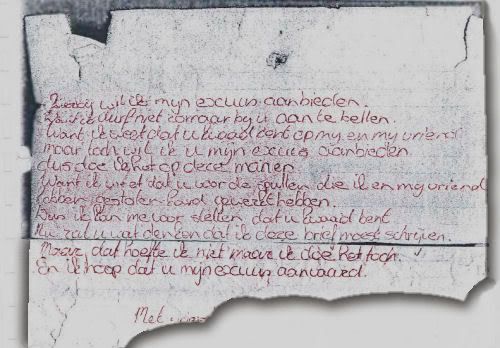 Hierbij wil ik mijn excuus aanbieden.
durf niet bij u aan te bellen.
Want ik weet dat u kwaad bent op my en my vriend
maar toch wil ik u mijn excuus aanbieden
dus doe ik het op deze manier
Want ik weet dat u voor die spullen die ik en my vriend
hebben gestolen hard gewerkt hebben.
Dus ik kan me voor stellen dat u kwaad bent
Nu zal u wat denken dat ik deze brief moest schrijven.
Maar, dat hoefte ik niet maar ik doe het toch.
En ik hoop dat u mijn excuus aanvaard.
Met